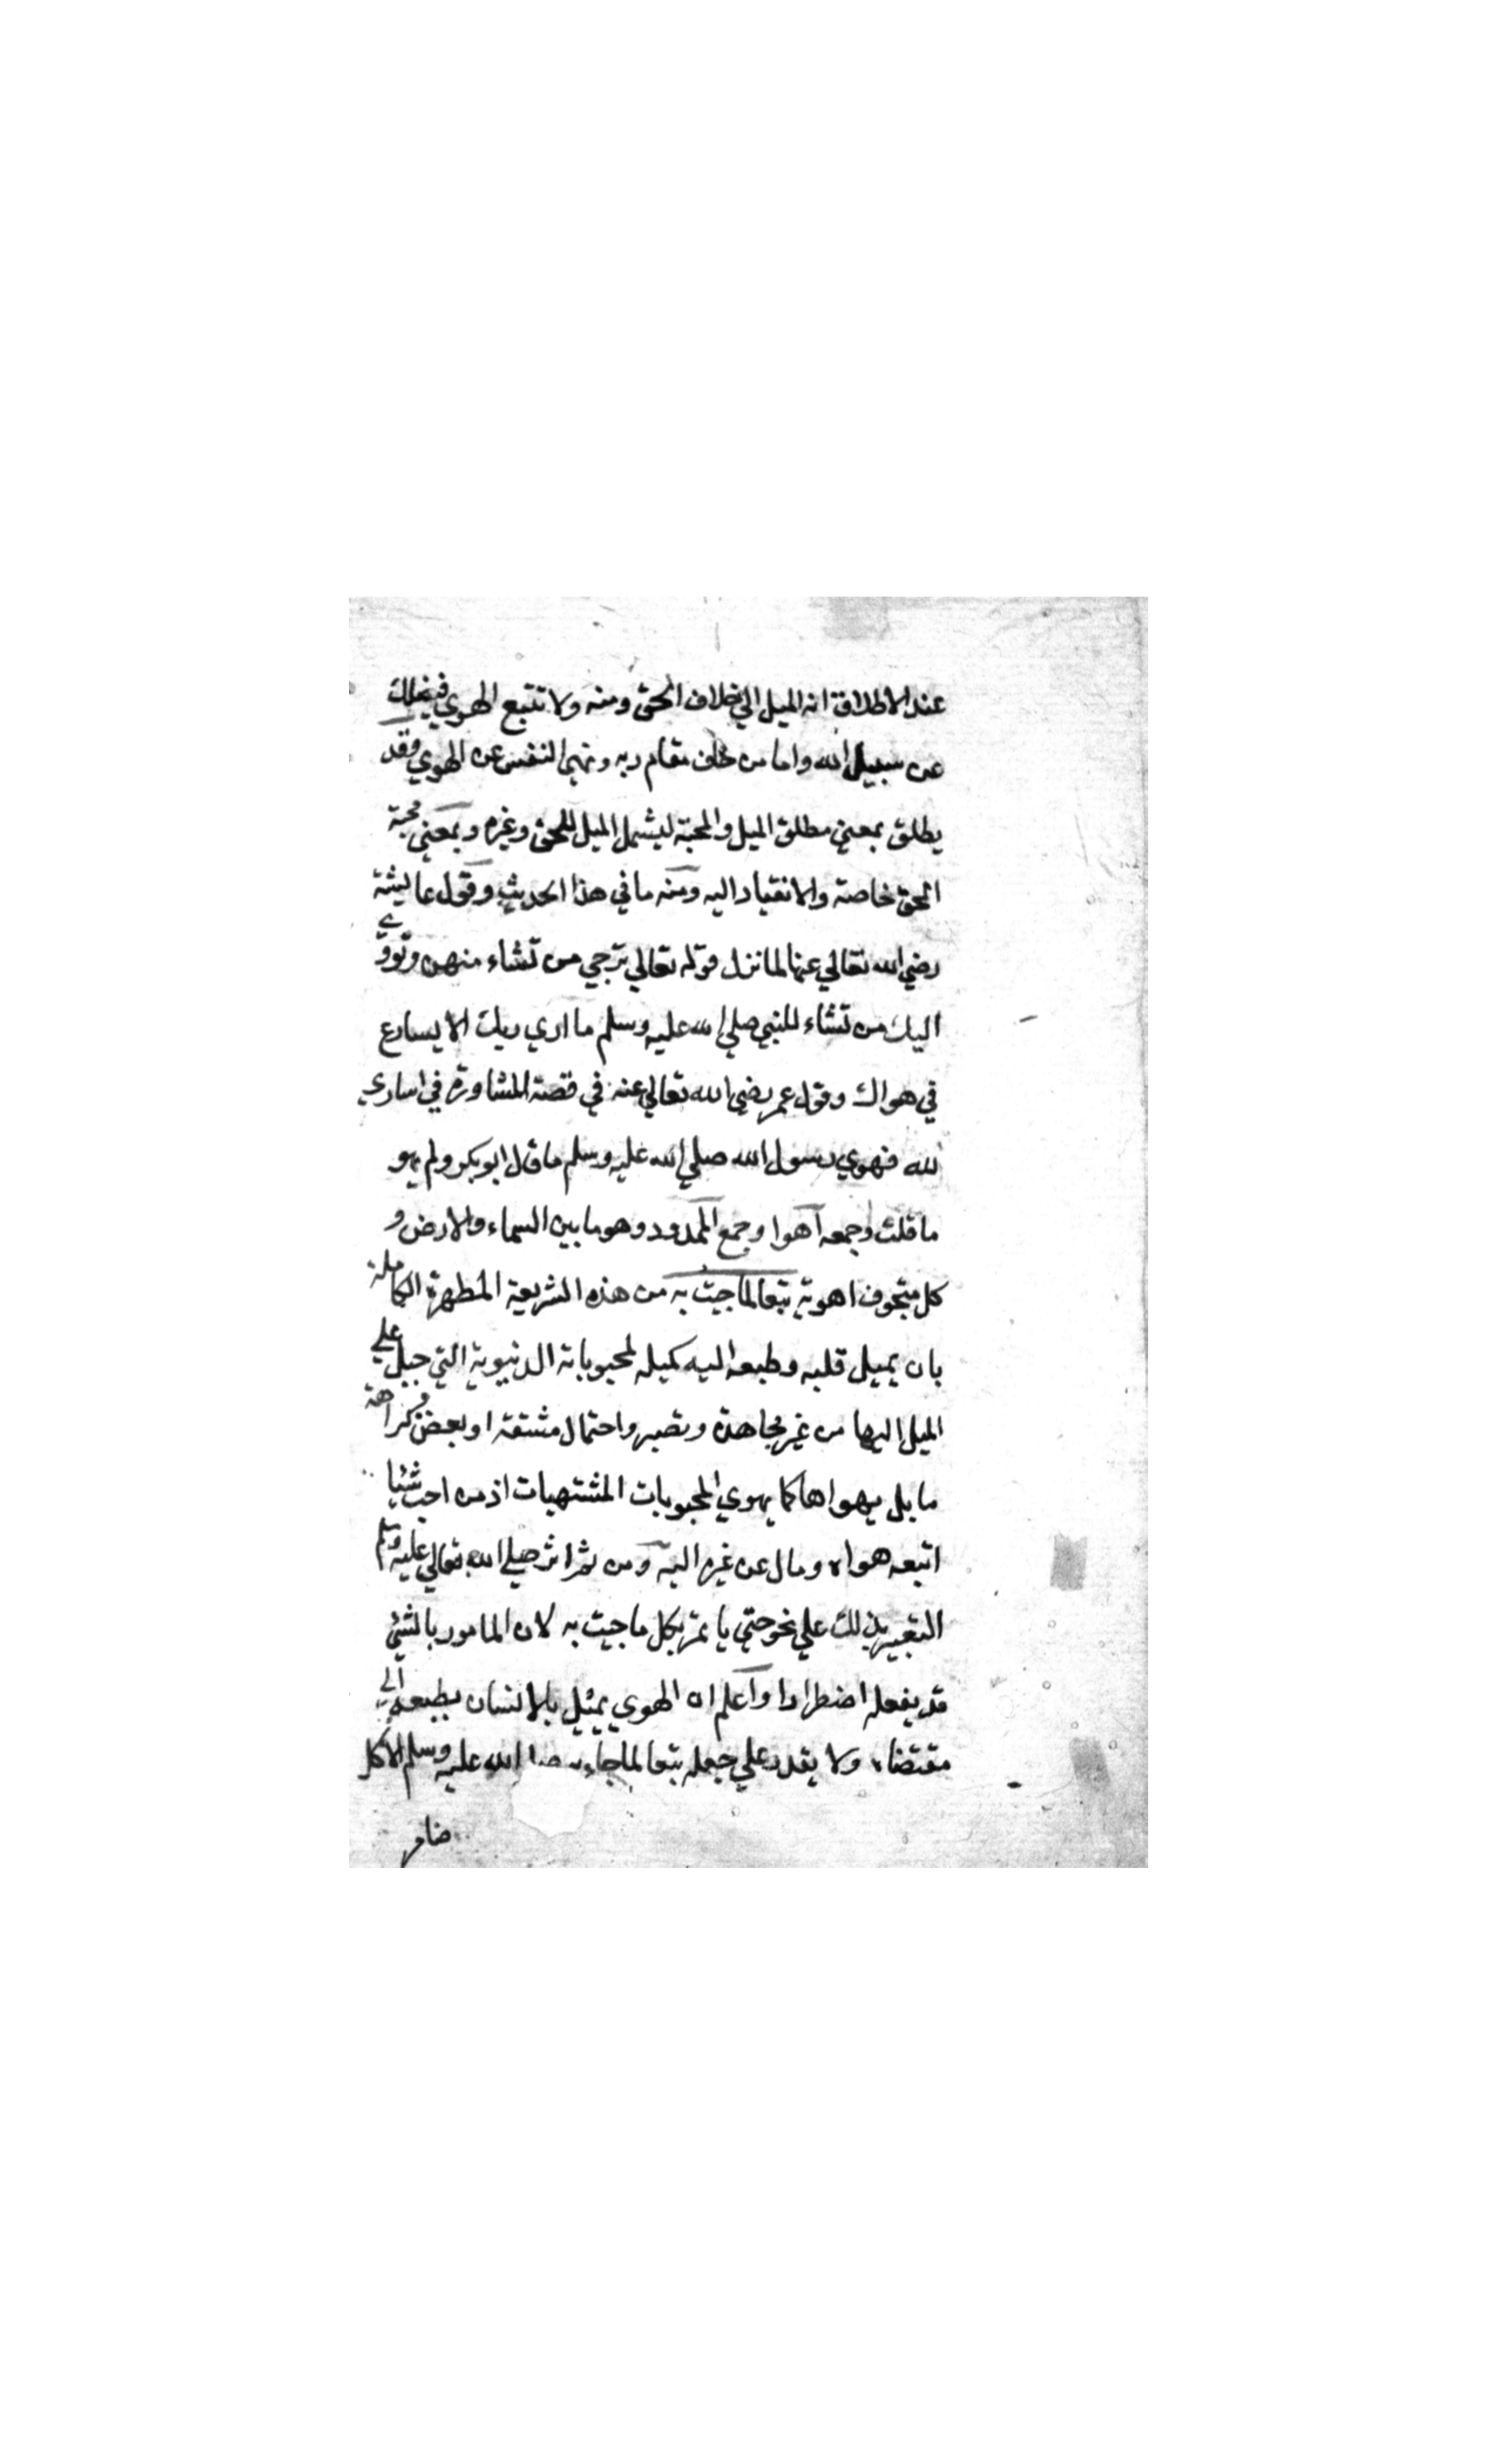 عند الاطلاق انه الميل الي خلاف الحق ومنه ولا تتبع الهوي فيضلك
عن سبيل الله واما من خاف مقام ربه ونهي النفس عن الهوي وقد
يطلق بمعني مطلق الميل والمحبة ليشمل الميل للحق وغيره وبمعني محبة
الحق خاصة والانقياد اليه ومنه ما في هذا الحديث وقول عايشة
رضي الله تعالي عنها لما نزل قوله تعالي ترجي من تشاء منهن وتووي
اليك من تشاء للنبي صلي الله عليه وسلم ما اري ربك الا يسارع
في هواك وقول عمر رضي الله تعالي عنه في قصة المشاورة في اساري
لله فهوي رسول الله صلي الله عليه وسلم ما قال ابو بكر ولم يهو
ما قلت وجمعه اهوا وجمع الممدود وهو ما بين السماء والارض و
كل متجوف اهوية تبعا لما جيت به من هذه الشريعة المطهرة الكاملة
بان يميل قلبه وطبعه اليه كميله لمحبوباته الدنيوية التي جبل علي
الميل اليها من غير مجاهدة وتصبر واحتمال مشقة او بعض كراهة
ما بل يهواها كما يهوي المحبوبات المشتهيات اذ من احب شئيا
اتبعه هواه ومال عن غيره اليه ومن ثم اثر صلي الله تعالي عليه وسلم
التعبير بذلك علي نحو حتي ياتمر بكل ما جيت به لان المامور بالشئي
قد يفعله اضطرارا واعلم ان الهوي يميل بالانسان بطبعه الي
مقتضاه ولا يقدر علي جعله تبعا لما جاء به صلي الله عليه وسلم الا كل
ضامر